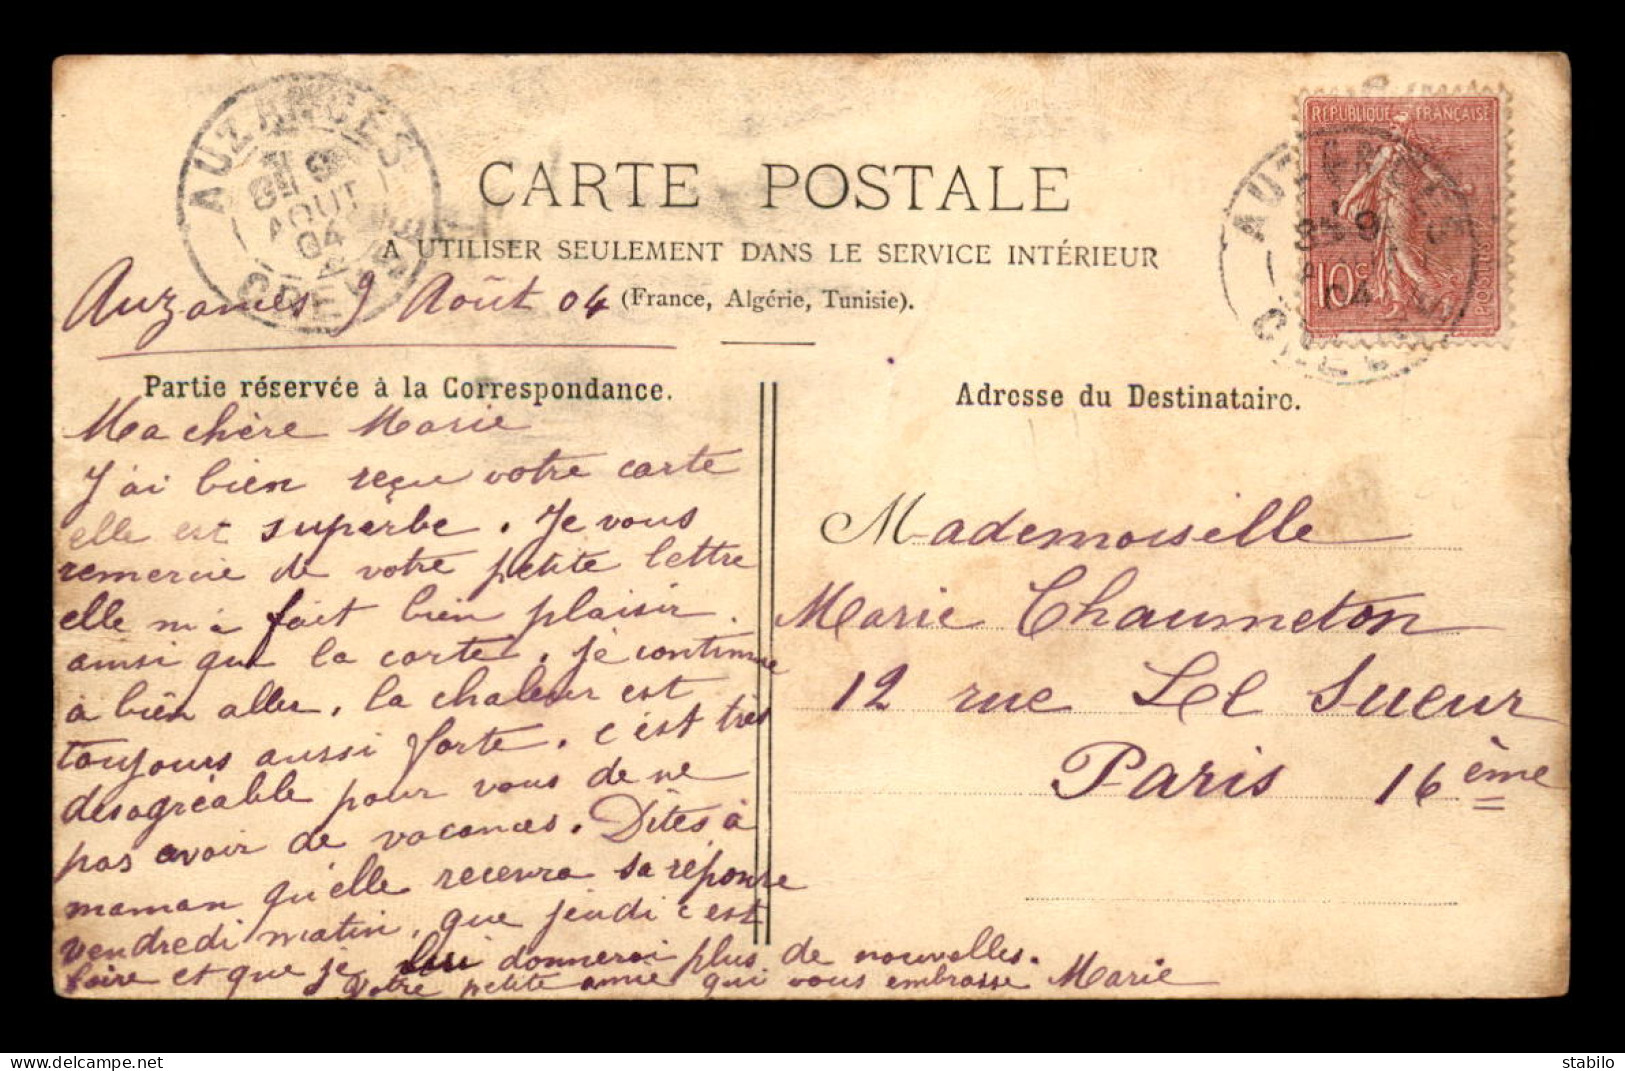 AUZANCES
9
AOUT
04
CREUSE
RÉPUBLIQUE FRANÇAISE
10c
POSTES
9
04
CARTE POSTALE
A UTILISER SEULEMENT DANS LE SERVICE INTÉRIEUR
(France, Algérie, Tunisie).
Auzances 9 Août 04
Partie réservée à la Correspondance.
Ma chère Marie
J'ai bien reçu votre carte
elle est superbe. Je vous
remercie de votre petite lettre
elle m'a fait bien plaisir
ainsi que la carte. je continue
à bien aller. la chaleur est
toujours aussi forte. c'est très
désagréable pour vous de ne
pas avoir de vacances. Dites à
maman qu'elle recevra sa réponse
vendredi matin, que jeudi c'est
foire et que je lui donnerai plus de nouvelles.
Votre petite amie qui vous embrasse Marie
Adresse du Destinataire.
Mademoiselle
Marie Chaumeton
12 rue Lel Sueur
Paris 16 ème
stabilo